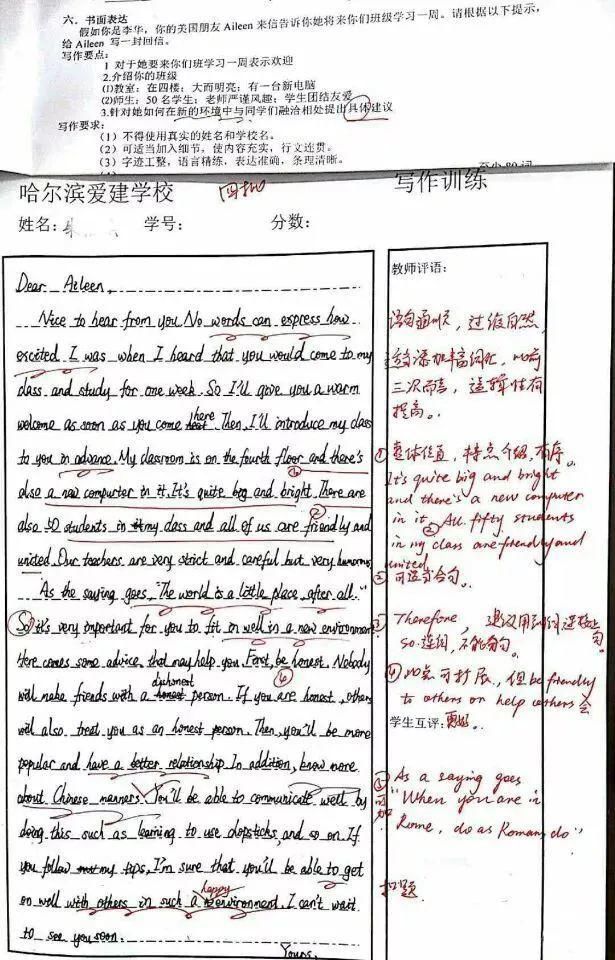 六．书面表达
假如你是李华，你的美国朋友 Aileen 来信告诉你她将来你们班级学习一周。请根据以下提示，
给 Aileen 写一封回信。
写作要点：
1 对于她要来你们班学习一周表示欢迎
2.介绍你的班级
(1)教室：在四楼；大而明亮；有一台新电脑
(2)师生：50 名学生；老师严谨风趣；学生团结友爱
3.针对她如何在新的环境中与同学们融洽相处提出具体建议
写作要求：
（1）不得使用真实的姓名和学校名。
（2）可适当加入细节，使内容充实，行文连贯。
（3）字迹工整，语言精练，表达准确，条理清晰。
至少 80 词
哈尔滨爱建学校
写作训练
姓名：
学号：
分数：
Dear Aileen,
Nice to hear from you. No words can express how
excited I was when I heard that you would come to my
class and study for one week. So I'll give you a warm
welcome as soon as you come here. Then, I'll introduce my class
to you in advance. My classroom is on the fourth floor and there's
also a new computer in it. It's quite big and bright. There are
also 50 students in my class and all of us are friendly and
united. Our teachers are very strict and careful but very humorous.
As the saying goes, "The world is a little place after all."
So it's very important for you to fit in well in a new environment.
Here comes some advice that may help you. First, be honest. Nobody
will make friends with a dishonest person. If you are honest, others
will also treat you as an honest person. Then, you'll be more
popular and have a better relationship. In addition, know more
about Chinese manners. You'll be able to communicate well by
doing this such as learning to use chopsticks, and so on. If
you follow my tips, I'm sure that you'll be able to get
on well with others in such a happy environment. I can't wait
to see you soon.
Yours,
教师评语：
语句通顺，过渡自然
提高。
① 整体位置，特点介绍，有序。
It's quite big and bright
and there's a new computer
in it. ② All fifty students
in my class are friendly and
united
② 可适当合句。
③ Therefore,
so 连词，不能分句。
④ 此点可扩展，但 be friendly
to others or help others 会
学生互评：更好。
⑤ As a saying goes
可加 "When you are in
Rome, do as Romans do"
扣题